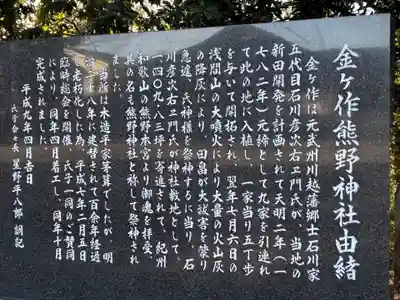 金ヶ作熊野神社由緒
金ヶ作は元武州川越藩郷士石川家
五代目石川彦次右ヱ門氏が、当地の
新田開発を計画されて天明二年(一
七八二年)元締として九家を引連れ
て此の地に入植し、一家当り五丁歩
を与いて開拓され、翌年七月六日の
浅間山の大噴火により大量の火山灰
の降灰により、田畠が大被害を蒙り
急遽、氏神様を祭神するに当り、石
川彦次右ヱ門氏が神社敷地として、
一、四〇九八三坪を寄進されて、紀州
和歌山の熊野本宮より御魂を拝受、
其の名も熊野神社と称して祭神され
ました。
当所は木造平家茅葺でしたが、明
治二十八年に建替されて百余年経過
し老朽化した為、平成七年二月五日
臨時総会を開催、氏子一同のご賛同
により、同年四月着工し、同年十月
完成されました。
平成九年四月吉日
氏子会々長 星野平八郎 調記